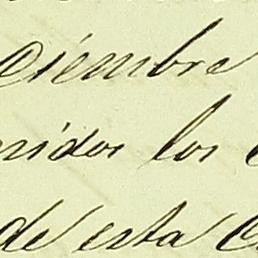 ciembre
nidos los
de esta